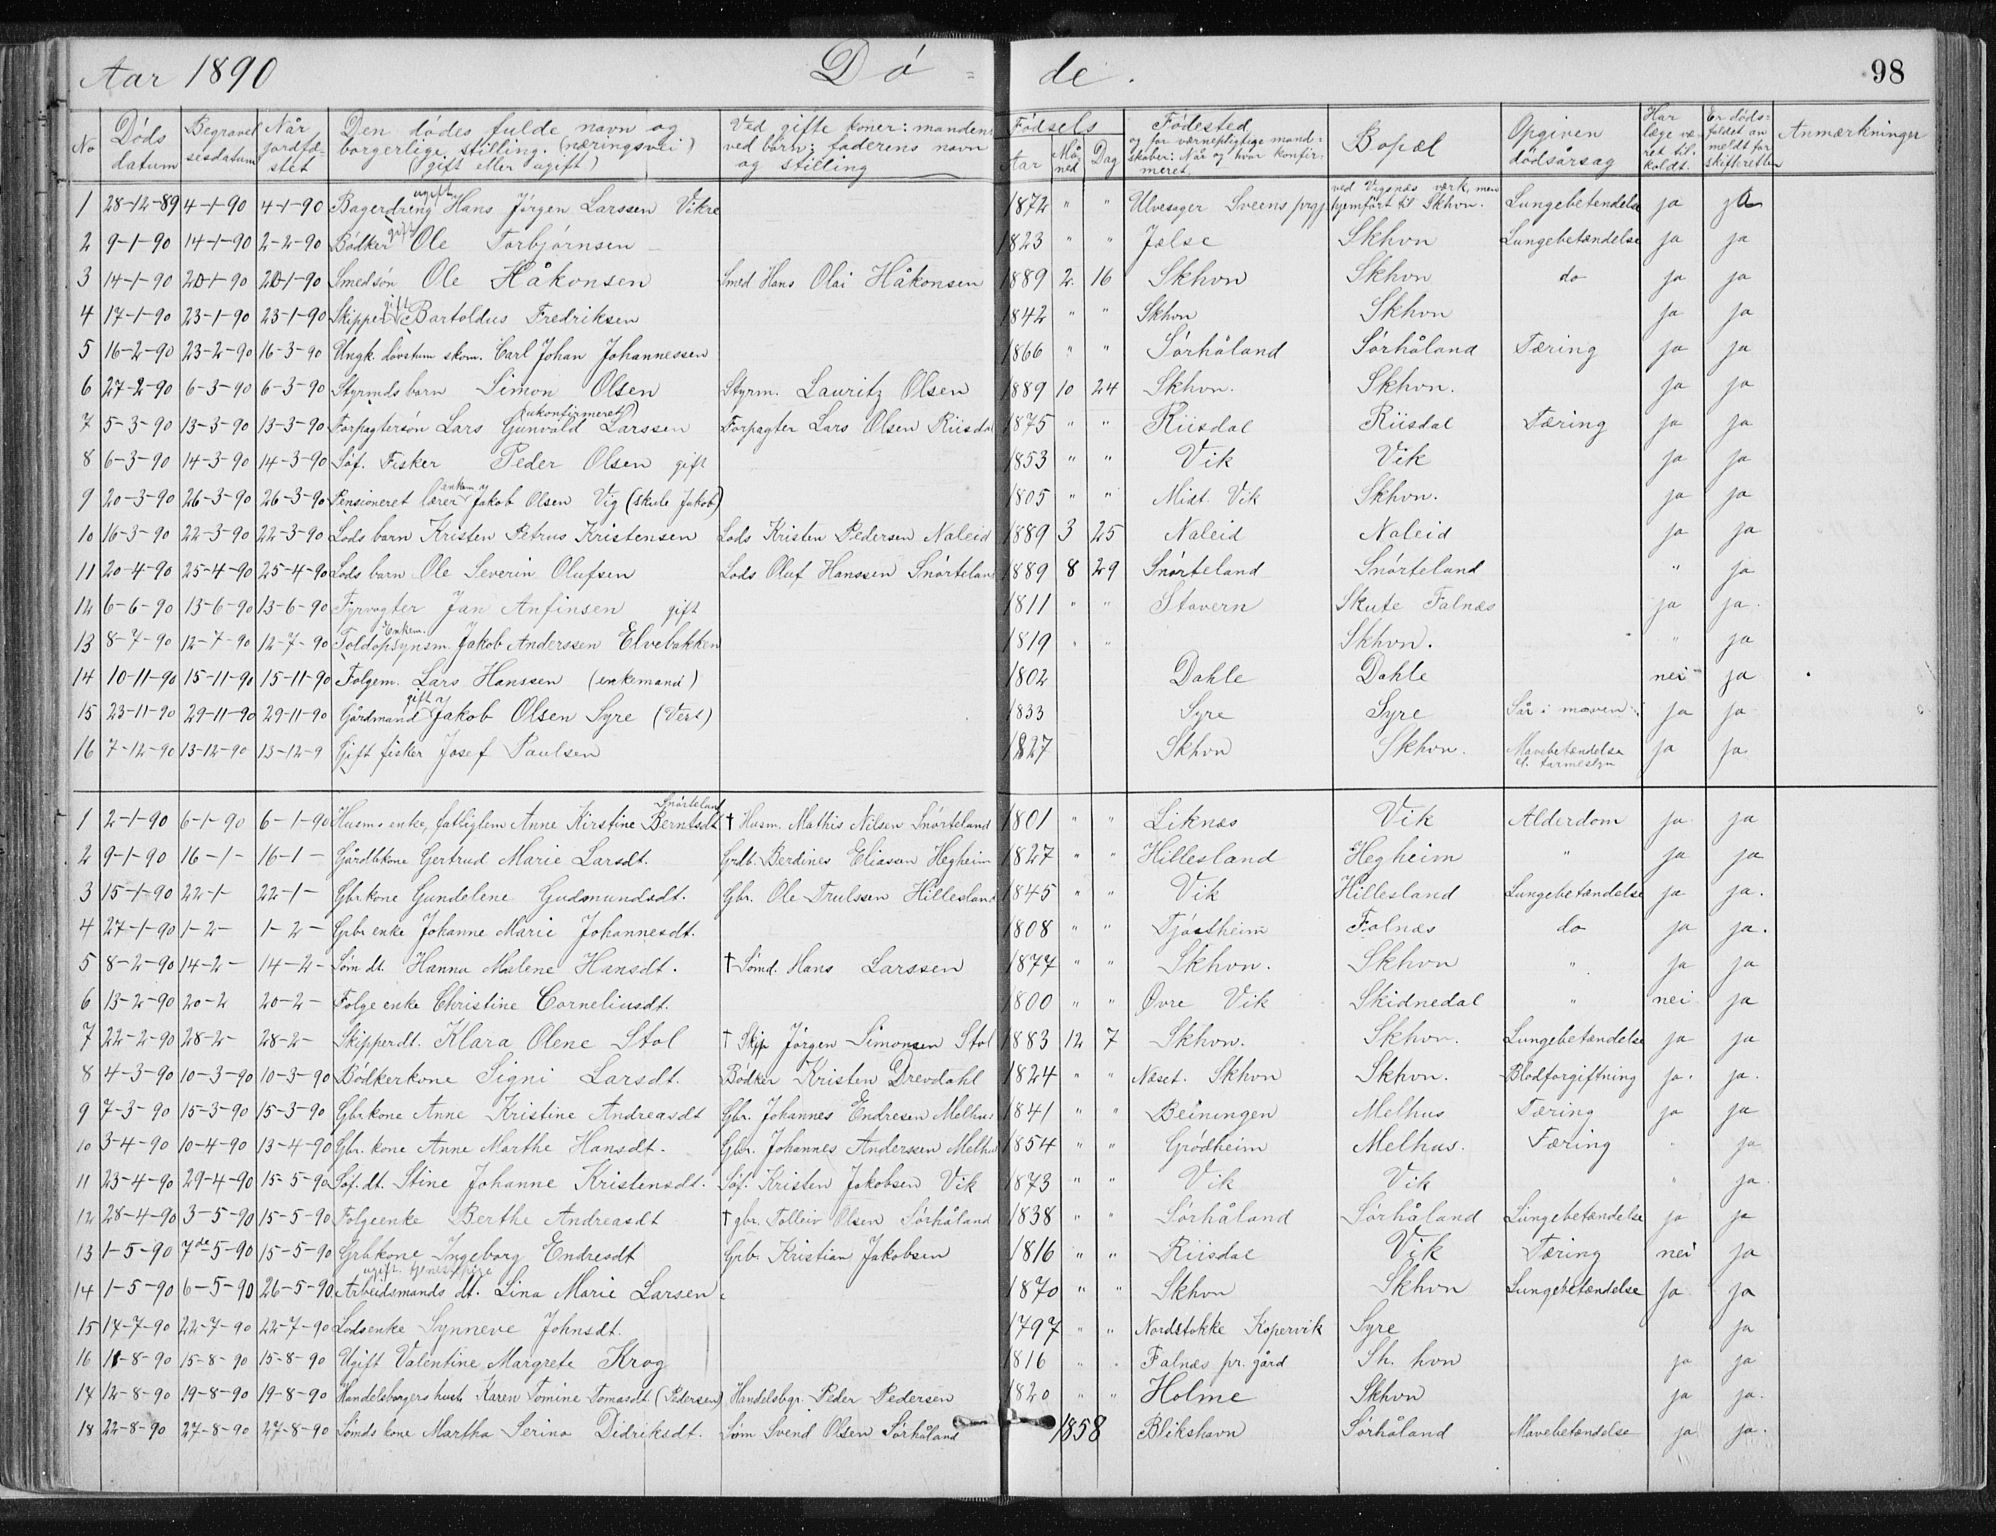 Aar 1890 Dö = de. 98
No | Döds datum | Begravelsesdatum | Når jordfæstet | Den dödes fulde navn og borgerlige stilling. (næringsvei) (gift eller ugift) | Ved gifte koner: mandens ved barn: faderens navn og stilling | Födsels Aar | Måned | Dag | Födested og for værnepligtige mandskaber: Når og hvor konfirmeret. | Bopæl | Opgiven dödsårsag | Har læge været tilkaldt. | Er dödsfaldet anmeldt for skifteretten | Anmærkninger
1 28-12-89 4-1-90 4-1-90 Bagerdreng ugift Hans Jörgen Larssen Vikre 1872 " " Ulvesager Sveens prgj. ved Vigsnæs værk, men hjemfört til Skhvn. Lungebetendelse ja ja
2 9-1-90 14-1-90 2-2-90 Bödker gift Ole Torbjörnsen 1823 " " Jælse Skhvn Lungebetændelse ja ja
3 14-1-90 20-1-90 20-1-90 Smedsön Ole Håkonsen Smed Hans Olai Håkonsen 1889 2. 16 Skhvn Skhvn do ja ja
4 17-1-90 23-1-90 23-1-90 Skipper gift Bartoldus Fredriksen 1842 " " Skhvn Skhvn ja ja
5 16-2-90 23-2-90 16-3-90 Ungk. dövstum skom. Carl Johan Johannessen 1866 " " Sörhåland Sörhåland Tæring ja ja
6 27-2-90 6-3-90 6-3-90 Styrmds barn Simon Olsen Styrm. Lauritz Olsen 1889 10 24 Skhvn. Skhvn. ja ja
7 5-3-90 13-3-90 13-3-90 Forpagtersön Lars Gunvald Larssen (ukonfirmeret) Forpagter Lars Olsen Riisdal 1875 " " Riisdal Riisdal Tæring ja ja
8 6-3-90 14-3-90 14-3-90 Söf. Fisker Peder Olsen gift 1853 " " Vik Vik ja ja
9 20-3-90 26-3-90 26-3-90 Pensioneret lærer enkem. Jakob Olsen Vig (skule Jakob) 1805 " " Midt. Vik Skhvn. ja ja
10 16-3-90 22-3-90 22-3-90 Lods barn Kristen Petrus Kristensen Lods Kristen Pedersen Naleid 1889 3 25 Naleid Naleid ja ja
11 20-4-90 25-4-90 25-4-90 Lods barn Ole Severin Olufsen Lods Oluf Hanssen Snörteland 1889 8 29 Snörteland Snörteland " ja
12 6-6-90 13-6-90 13-6-90 Fyrvogter Jan Anfinsen gift 1811 " " Stavern Skute Falnæs ja ja.
13 8-7-90 12-7-90 12-7-90 Toldopsynsm. Enkem. Jakob Anderssen Elvebakken 1819 " " Skhvn. " ja
14 10-11-90 15-11-90 15-11-90 Folgem. Lars Hanssen (enkemand) 1802 Dahle Dahle nei ja
15 23-11-90 29-11-90 29-11-90 Gårdmand gift Jakob Olsen Syre (Vest) 1833 Syre Syre Sår i maven ja ja
16 7-12-90 13-12-90 13-12-9 Gift fisker Josef Paulsen 1827 Skhvn Skhvn. Mavebetændelse el. tarmeslyn ja ja
1 2-1-90 6-1-90 6-1-90 Husms enke, fattiglem Anne Kirstine Berntsdt Snörteland † Husm. Mathis Nilsen Snörteland 1801 " " Liknæs Vik Alderdom ja ja
2 9-1-90 16-1- 16-1- Gårdbkone Gertrud Marie Larsdt. Grdb. Berdines Eliassen Hegheim 1827 " " Hillesland Hegheim " ja ja
3 15-1-90 22-1- 22-1- Gbrkone Gundelene Gudmundsdt. Gbr. Ole Trulssen Hillesland 1845 " " Vik Hillesland Lungebetændelse ja ja.
4 27-1-90 1-2- 1-2- Grbr enke Johanne Marie Johannesdt. 1808 " " Tjöstheim Falnæs do ja ja.
5 8-2-90 14-2- 14-2- Söm dt. Hanna Malene Hansdt. † Sömd. Hans Larssen 1877 " " Skhvn. Skhvn " ja ja
6 13-2-90 20-2 20-2- Folge enke Christine Corneliusdt. 1800 " " Övre Vik Skidnedal " nei ja
7 22-2-90 28-2- 28-2- Skipperdt. Klara Olene Stol † Skip Jörgen Simonsen Stol 1883 12 7 Skhvn. Skhvn. Lungebetændelse ja ja
8 4-3-90 10-3-90 10-3-90 Bödkerkone Signi Larsdt. Bödker Kristen Drevdahl 1824 " " Næset. Skhvn Skhvn. Blodforgiftning ja. ja.
9 7-3-90 15-3-90 15-3-90 Gbrkone Anne Kristine Andreasdt Gbr. Johannes Endresen Melhus 1841 " " Beiningen Melhus Tæring ja ja
10 3-4-90 10-4-90 13-4-90 Gbr. kone Anne Marthe Hansdt. Gbr. Johannes Anderssen Melhus 1854 " " Grödheim Melhus. Tæring " ja
11 23-4-90 29-4-90 15-5-90 Söf. dt. Stine Johanne Kristensdt. Söf. Kristen Jakobsen Vik 1873 " " Vik Vik " ja.
12 28-4-90 3-5-90 15-5-90 Folgeenke Berthe Andreasdt † gbr. Tolleiv Olsen Sörhåland 1838 " " Sörhåland Sörhåland Lungebetændelse ja ja
13 1-5-90 7de-5-90 15-5-90 Grbkone Ingeborg Endresdt Grb. Kristian Jakobsen 1816 " " Riisdal Vik Tæring nei ja
14 1-5-90 6-5-90 26-5-90 Arbeidsmands dt. ugift. tjenestepige Lina Marie Larsen 1870 " " Skhvn Skhvn Lungebetændelse ja ja
15 14-7-90 22-7-90 22-7-90 Lodsenke Synneve Johnsdt. 1797 " " Nordstokke Kopervik Syre ja
16 11-8-90 15-8-90 15-8-90 Ugift Valentine Margrete Krog 1816 " " Falnæs pr. gård Sk. hvn ja ja
17 12-8-90 19-8-90 19-8-90 Handelsborgers hust. Karen Tomine Tomasdt (Pedersen) Handelsbgr. Peder Pedersen 1820 " " Holme Skhvn ja ja.
18 22-8-90 27-8-90 27-8-90 Sömds kone Martha Serina Didriksdt. Söm Svend Olsen Sörhåland 1858 Blikshavn Sörhåland Mavebetændelse ja ja.